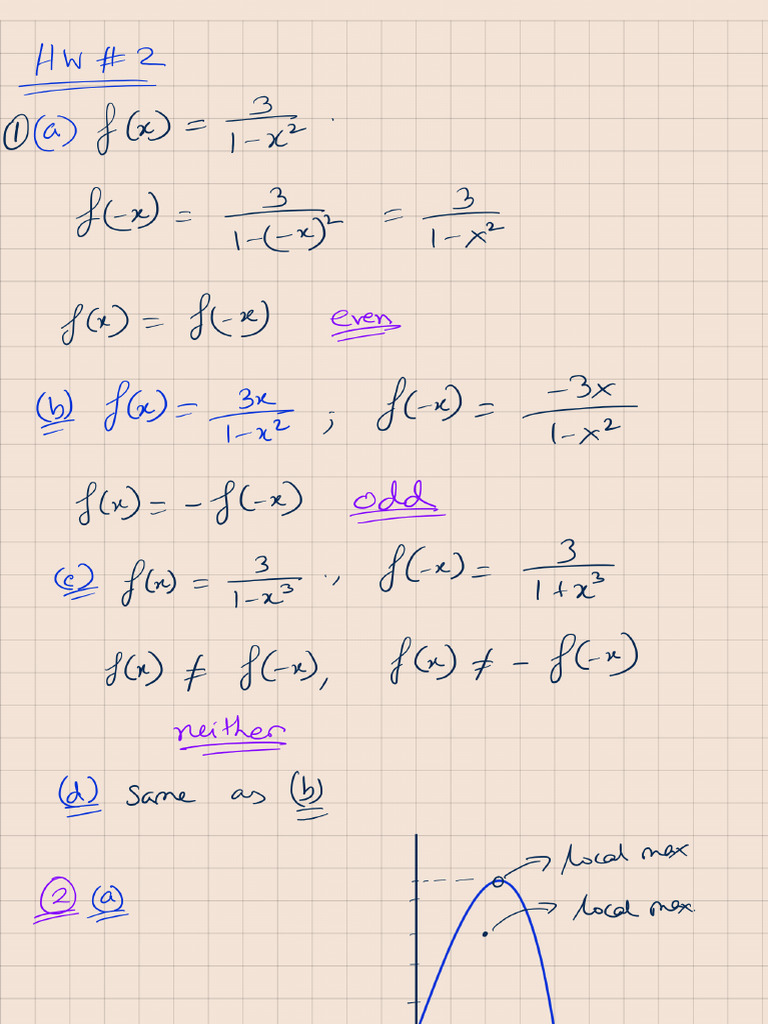 HW # 2
① (a) f(x) = 3/(1-x²)
f(-x) = 3/(1-(-x)²) = 3/(1-x²)
f(x) = f(-x) even
(b) f(x) = 3x/(1-x²) ; f(-x) = -3x/(1-x²)
f(x) = - f(-x) odd
(c) f(x) = 3/(1-x³) , f(-x) = 3/(1+x³)
f(x) ≠ f(-x), f(x) ≠ - f(-x)
neither
(d) same as (b)
→ local max
② (a)
→ local max